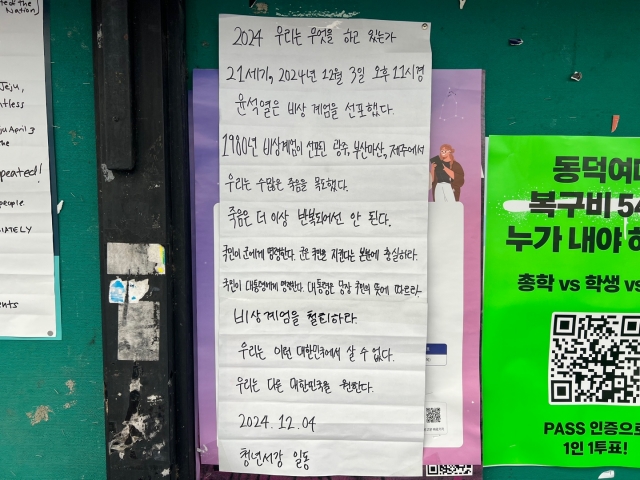 the
Nation
Jeju,
ntless
ju April 3
the
epeated!
people.
IATELY
ents
2024 우리는 무엇을 하고 있는가
21세기, 2024년 12월 3일 오후 11시경
윤석열은 비상 계엄을 선포했다.
1980년 비상계엄이 선포된 광주, 부산마산, 제주에서
우리는 수많은 죽음을 목도했다.
죽음은 더 이상 반복되어선 안 된다.
국민이 군에게 명령한다. 군은 국민을 지킨다는 본분에 충실하라.
국민이 대통령에게 명령한다. 대통령은 당장 국민의 뜻에 따르라.
비상계엄을 철회하라.
우리는 이런 대한민국에서 살 수 없다.
우리는 다른 대한민국을 원한다.
2024.12.04
청년서강 일동
동덕여대
복구비 54
누가 내야 하
총학 vs 학생 vs
PASS 인증으로
1인 1투표!